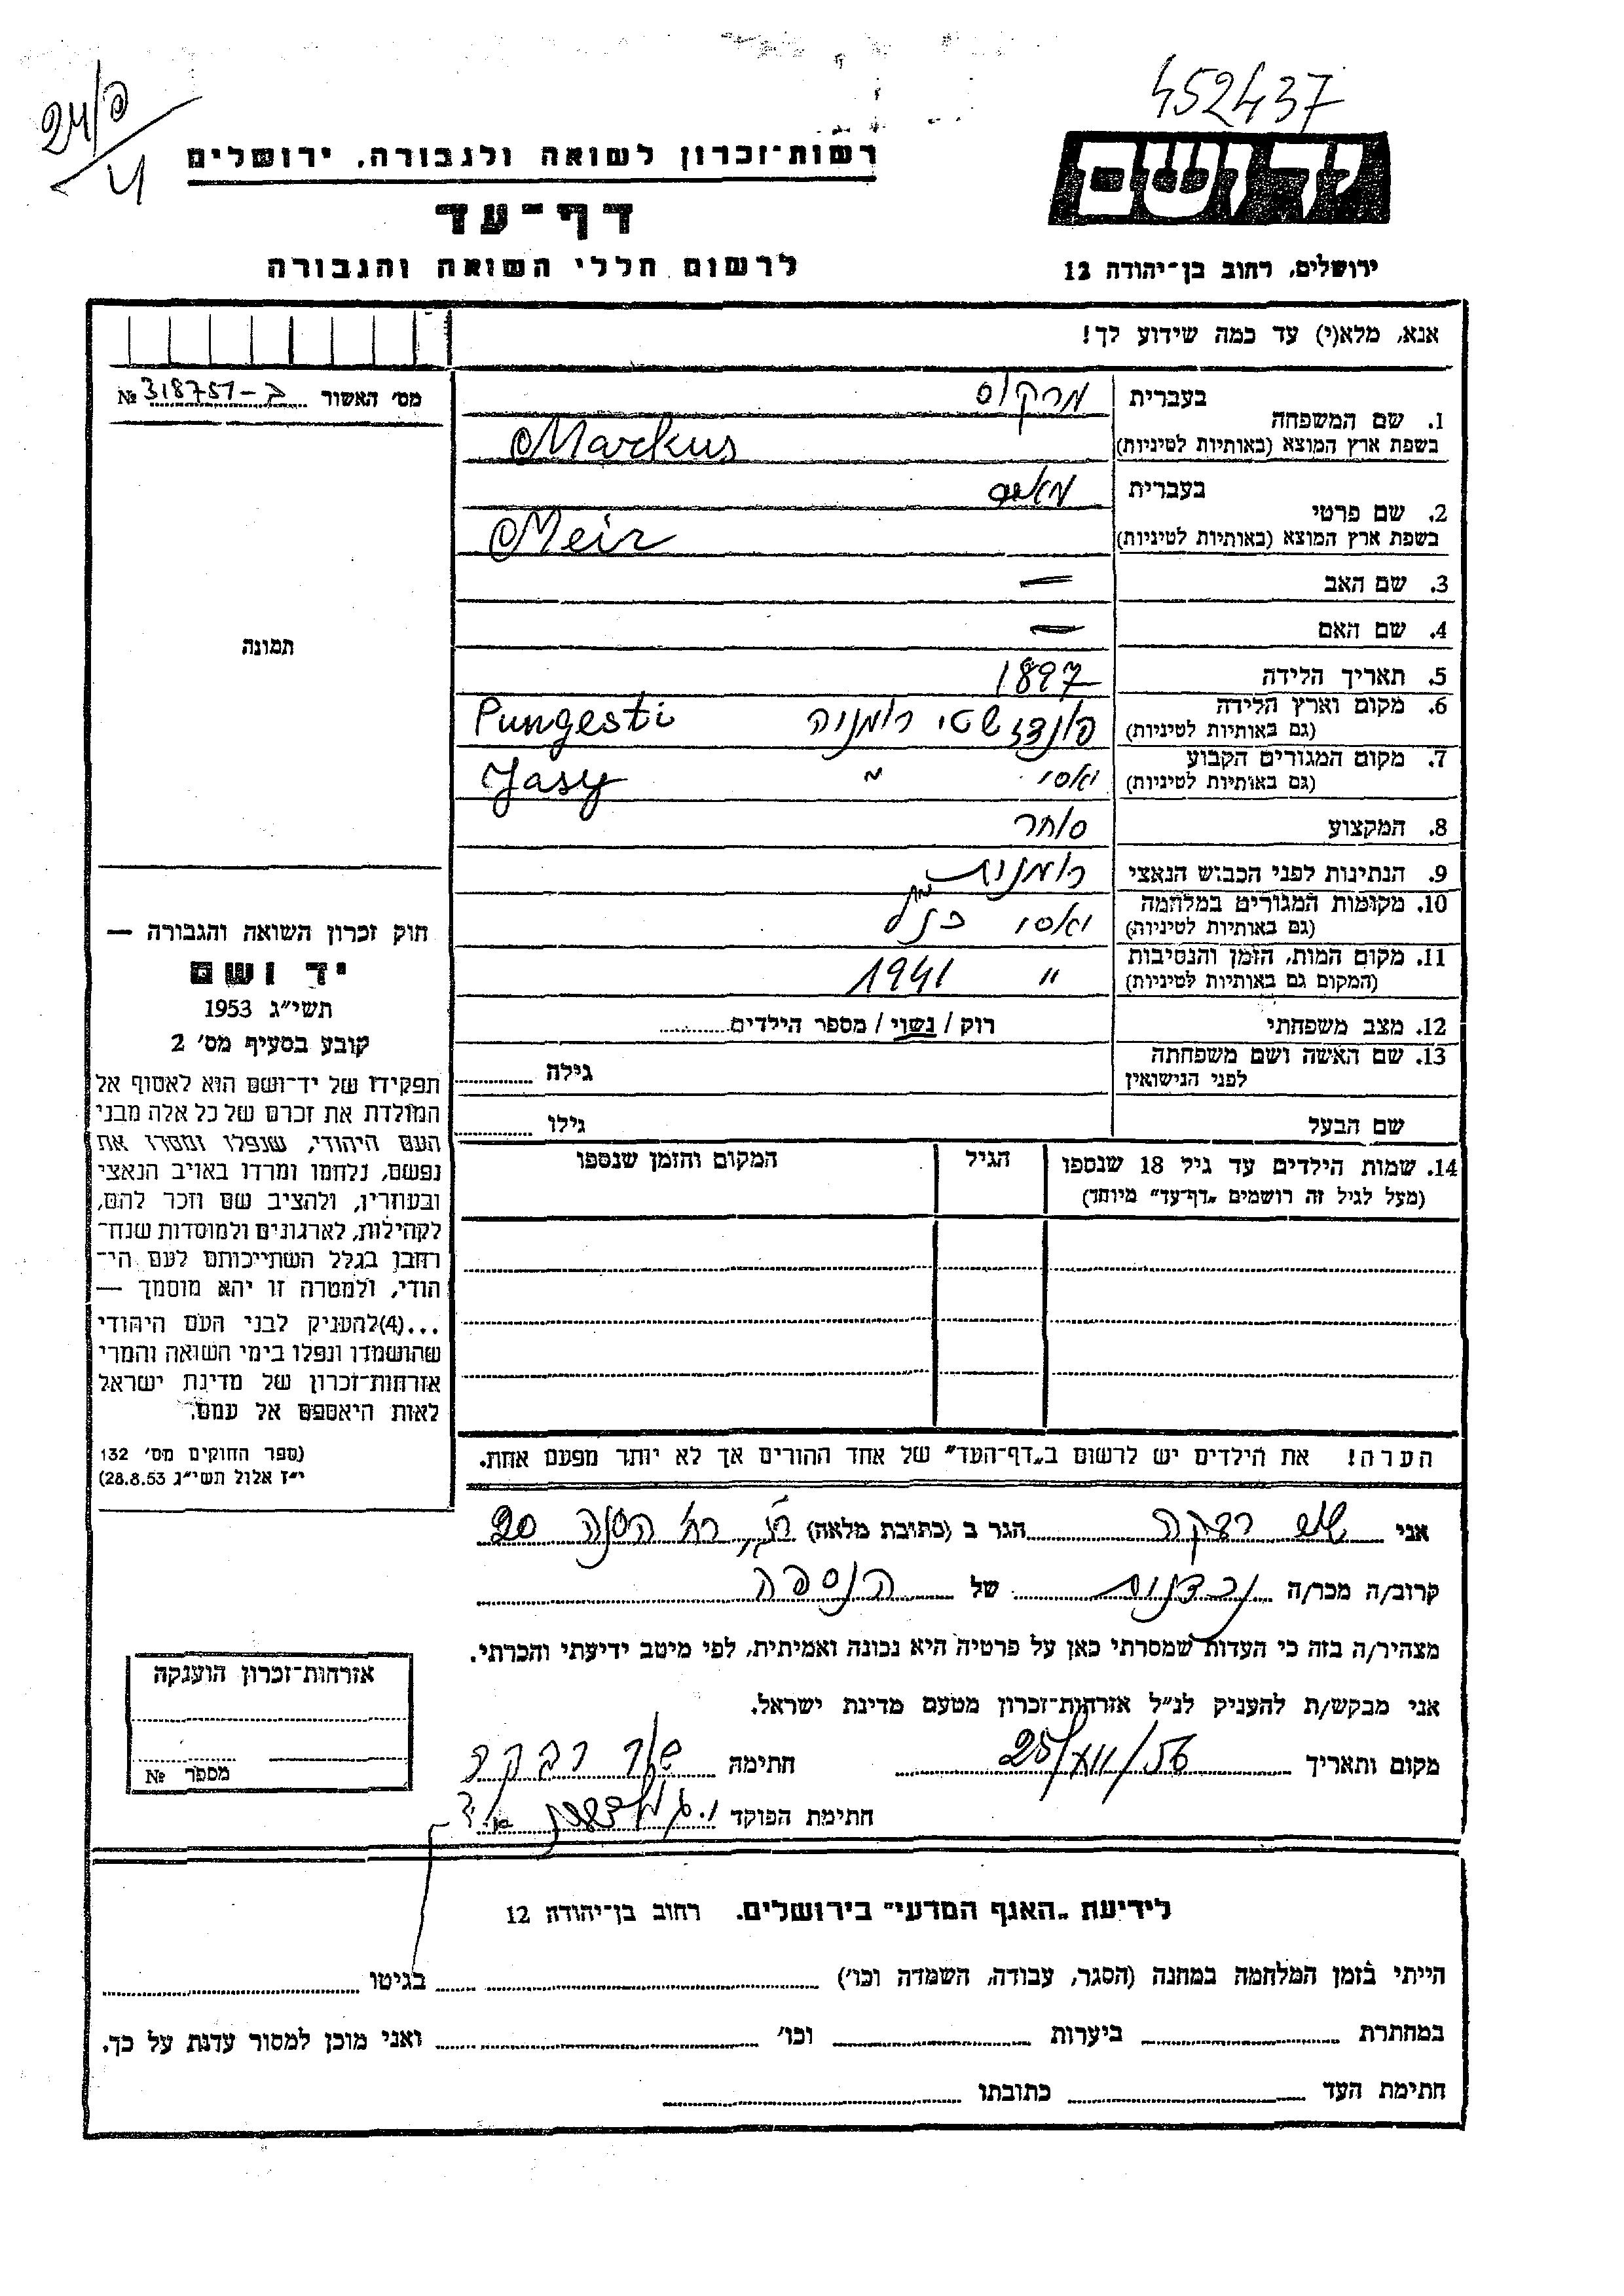 452437
24/פ
4
רשות-זכרון לשואה ולגבורה, ירושלים
יד ושם
דף-עד
לרשום חללי השואה והגבורה
ירושלים, רחוב בן-יהודה 12
אנא, מלא(י) עד כמה שידוע לך!
מס' האשור ב-318751 №
תמונה
בעברית מרקוס
1. שם המשפחה
בשפת ארץ המוצא (באותיות לטיניות) Markus
בעברית
2. שם פרטי
בשפת ארץ המוצא (באותיות לטיניות) Meir
3. שם האב —
4. שם האם —
5. תאריך הלידה 1897
6. מקום וארץ הלידה פונדז'שטי רומניה Pungesti
(גם באותיות לטיניות)
7. מקום המגורים הקבוע יאסי " Jasy
(גם באותיות לטיניות)
8. המקצוע סוחר
9. הנתינות לפני הכבוש הנאצי רומנית
10. מקומות המגורים במלחמה יאסי כנ"ל
(גם באותיות לטיניות)
11. מקום המות, הזמן והנסיבות " 1941
(המקום גם באותיות לטיניות)
12. מצב משפחתי רוק / נשוי / מספר הילדים
13. שם האשה ושם משפחתה
לפני הנישואין גילה
שם הבעל גילו
14. שמות הילדים עד גיל 18 שנספו הגיל המקום והזמן שנספו
(מעל לגיל זה רושמים "דף-עד" מיוחד)
חוק זכרון השואה והגבורה —
יד ושם
תשי"ג 1953
קובע בסעיף מס' 2
תפקידו של יד-ושם הוא לאסוף אל
המולדת את זכרם של כל אלה מבני
העם היהודי, שנפלו ומסרו את
נפשם, נלחמו ומרדו באויב הנאצי
ובעוזריו, ולהציב שם וזכר להם,
לקהילות, לארגונים ולמוסדות שנח-
רחבו בגלל השתייכותם לעם הי-
הודי, ולמטרה זו יהא מוסמך —
...(4)להעניק לבני העם היהודי
שהושמדו ונפלו בימי השואה והמרי
אזרחות-זכרון של מדינת ישראל
לאות היאספם אל עמם.
(ספר החוקים מס' 132
י"ז אלול תשי"ג 28.8.53)
הערה! את הילדים יש לרשום ב"דף-העד" של אחד ההורים אך לא יותר מפעם אחת.
אני רבקה הגר ב (כתובת מלאה) רח' הסנה 20
קרוב/ה מכר/ה של הנספה
מצהיר/ה בזה כי העדות שמסרתי כאן על פרטיה היא נכונה ואמיתית, לפי מיטב ידיעתי והכרתי.
אני מבקש/ת להעניק לנ"ל אזרחות-זכרון מטעם מדינת ישראל.
מקום ותאריך 25/XII/56 חתימה רבקה
חתימת הפוקד
אזרחות-זכרון הוענקה
מספר №
לידיעת "האגף המדעי" בירושלים. רחוב בן-יהודה 12
הייתי בזמן המלחמה במחנה (הסגר, עבודה, השמדה וכו') בגיטו
במחתרת ביערות וכו' ואני מוכן למסור עדות על כך.
חתימת העד כתובתו